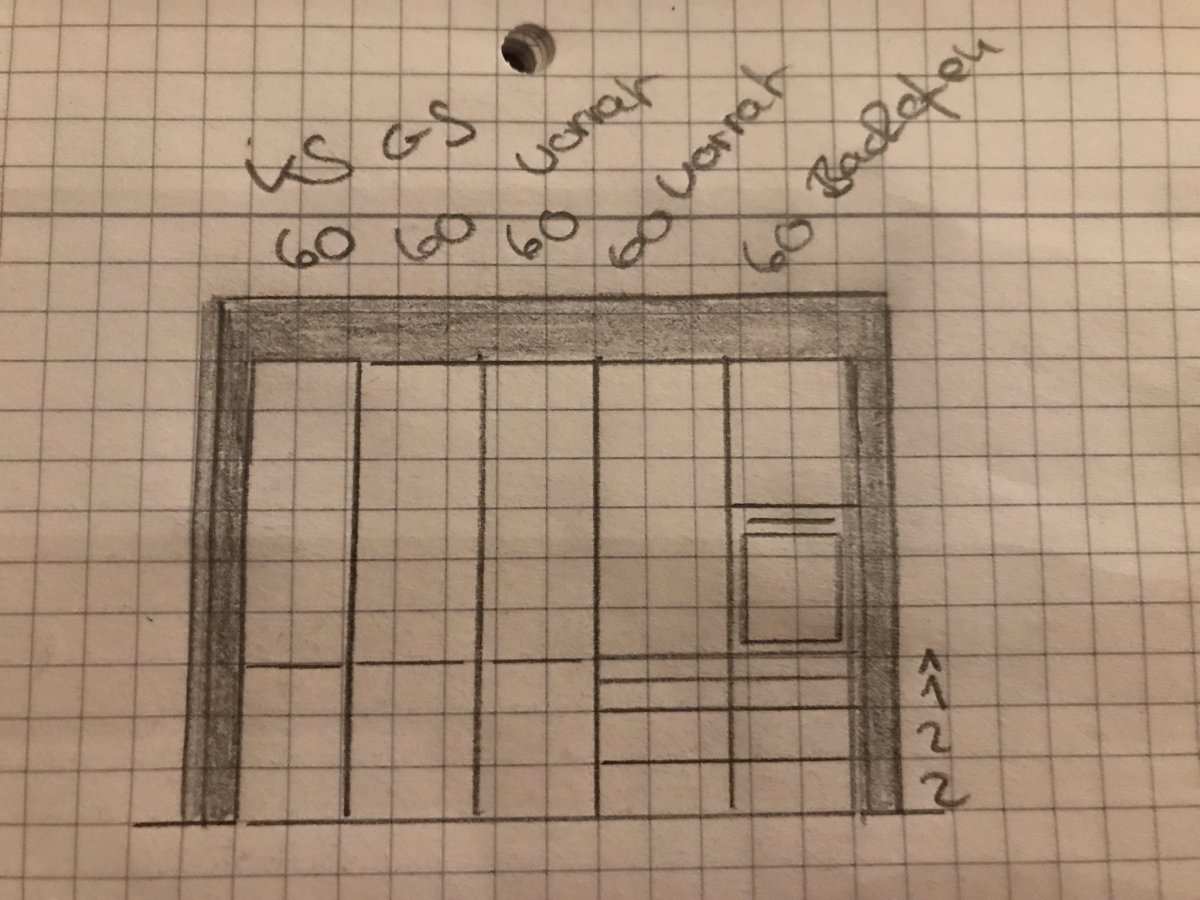 KS GS Vorrat Vorrat Backofen
60 60 60 60 60
1
1
2
2